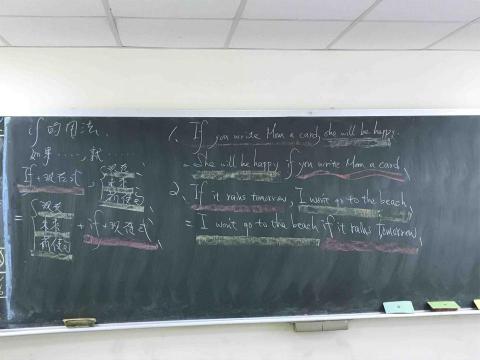 if的用法.
如果……,就…
If+現在式, 現在 未來 祈使句
= 現在 未來 祈使句 + if+現在式
1. If you write Mom a card, she will be happy.
= She will be happy if you write Mom a card.
2. If it rains tomorrow, I won't go to the beach.
= I won't go to the beach if it rains tomorrow.